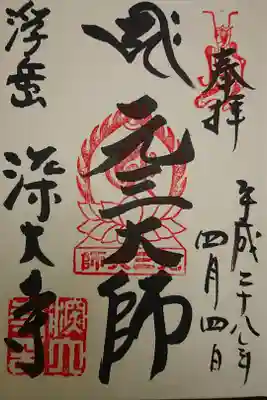 奉拝
平成二十八年
四月四日
元三大師
浮岳
深大寺
元三大師